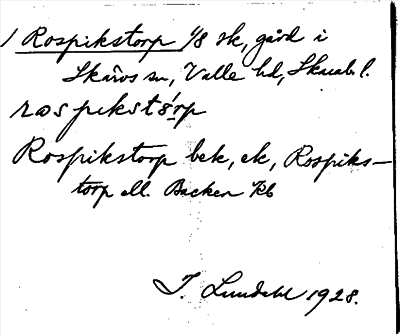 1 Rospikstorp 1/8 sk, gård i
Skärvs sn, Valle hd, Skarab l.
ròspıkstó̀rp
Rospikstorp bek, ek, Rospiks-
torp ell. Backen Kb
I. Lundahl 1928.